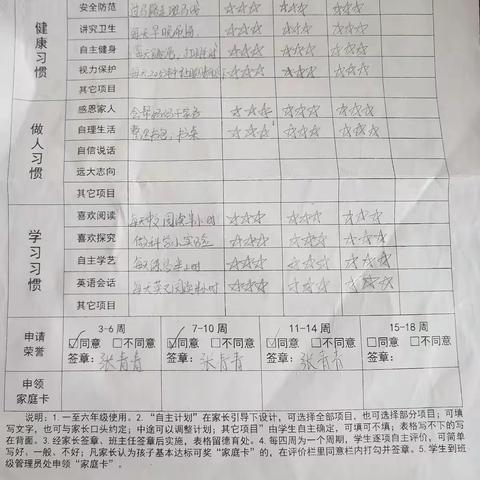 健康习惯
安全防范 过马路走斑马线 ☆☆☆ ☆☆☆ ☆☆☆
讲究卫生 每天早晚刷牙 ☆☆☆ ☆☆☆ ☆☆☆
自主健身 ☆☆☆ ☆☆☆ ☆☆☆
视力保护 ☆☆☆ ☆☆☆ ☆☆☆
其它项目
做人习惯
感恩家人 会帮妈妈干家务 ☆☆☆ ☆☆☆ ☆☆☆
自理生活 整理书包、书桌 ☆☆☆ ☆☆☆ ☆☆☆
自信说话
远大志向
其它项目
学习习惯
喜欢阅读 每天中文阅读半小时 ☆☆☆ ☆☆☆ ☆☆☆
喜欢探究 做科学小实验 ☆☆☆ ☆☆☆ ☆☆☆
自主学艺 每天练琴半小时 ☆☆☆ ☆☆☆ ☆☆☆
英语会话 每天英文阅读半小时 ☆☆☆ ☆☆☆ ☆☆☆
其它项目
申请荣誉
3-6 周 7-10 周 11-14 周 15-18 周
☑同意 □不同意 ☑同意 □不同意 ☑同意 □不同意 □同意 □不同意
签章：张青青 签章：张青青 签章：张青青 签章：
申领家庭卡
说明：1. 一至六年级使用。2. “自主计划”在家长引导下设计，可选择全部项目，也可选择部分项目；可填
写文字，也可与家长口头约定；中途可以调整计划；其它项目”由学生自主确定，可填可不填；表格写不下的写
在背面。3. 经家长签章、班主任签章后实施，表格留德育处。4. 每四周为一个周期，学生逐项自主评价，可简单
写好、一般、不好；凡家长认为孩子基本达标可奖“家庭卡”的，在评价栏里同意栏内打勾并签章。5. 学生到班
级管理员处申领“家庭卡”。